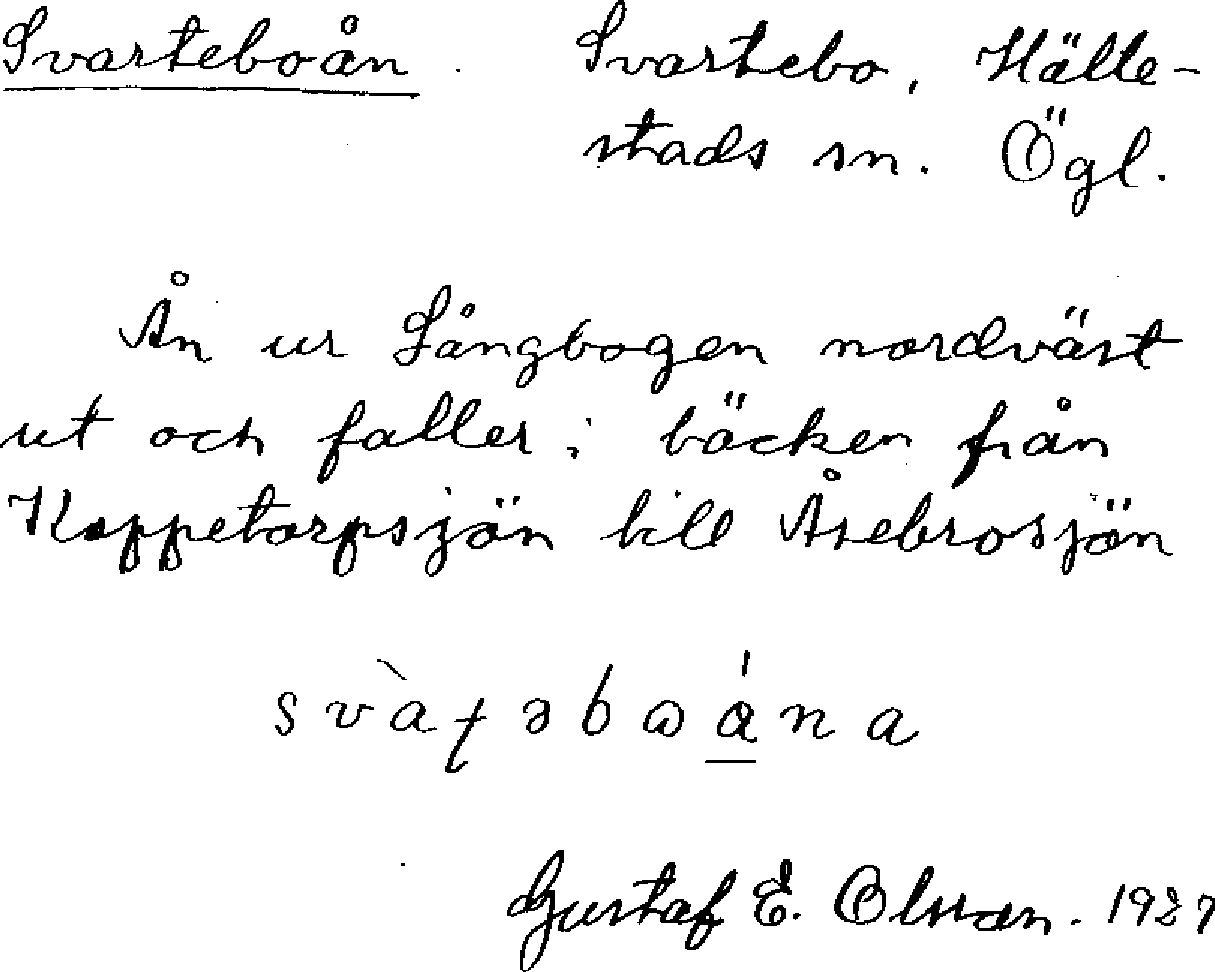 Svarteboån. Svartebo, Hälle-
stads sn. Ögl.
Ån ur Långbogen nordväst
ut och faller i bäcken från
Koppetorpsjön till Åsebrosjön
Gustaf E. Olsson. 1937